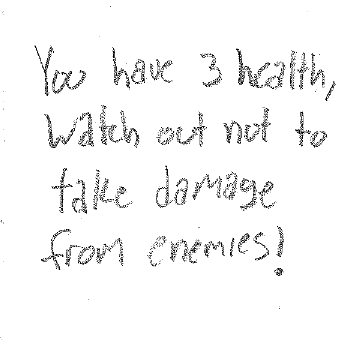 You have 3 health,
Watch out not to
take damage
from enemies!